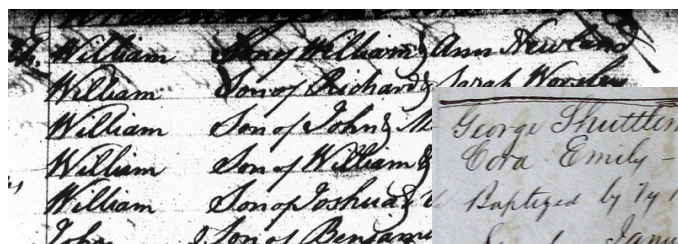 William Son of William & Ann Newland
William Son of Richard & Sarah Worsley
William Son of John &
William Son of William &
William Son of Joshua &
John Son of Benjam
George Shuttlen
Cora Emily -
Baptized by